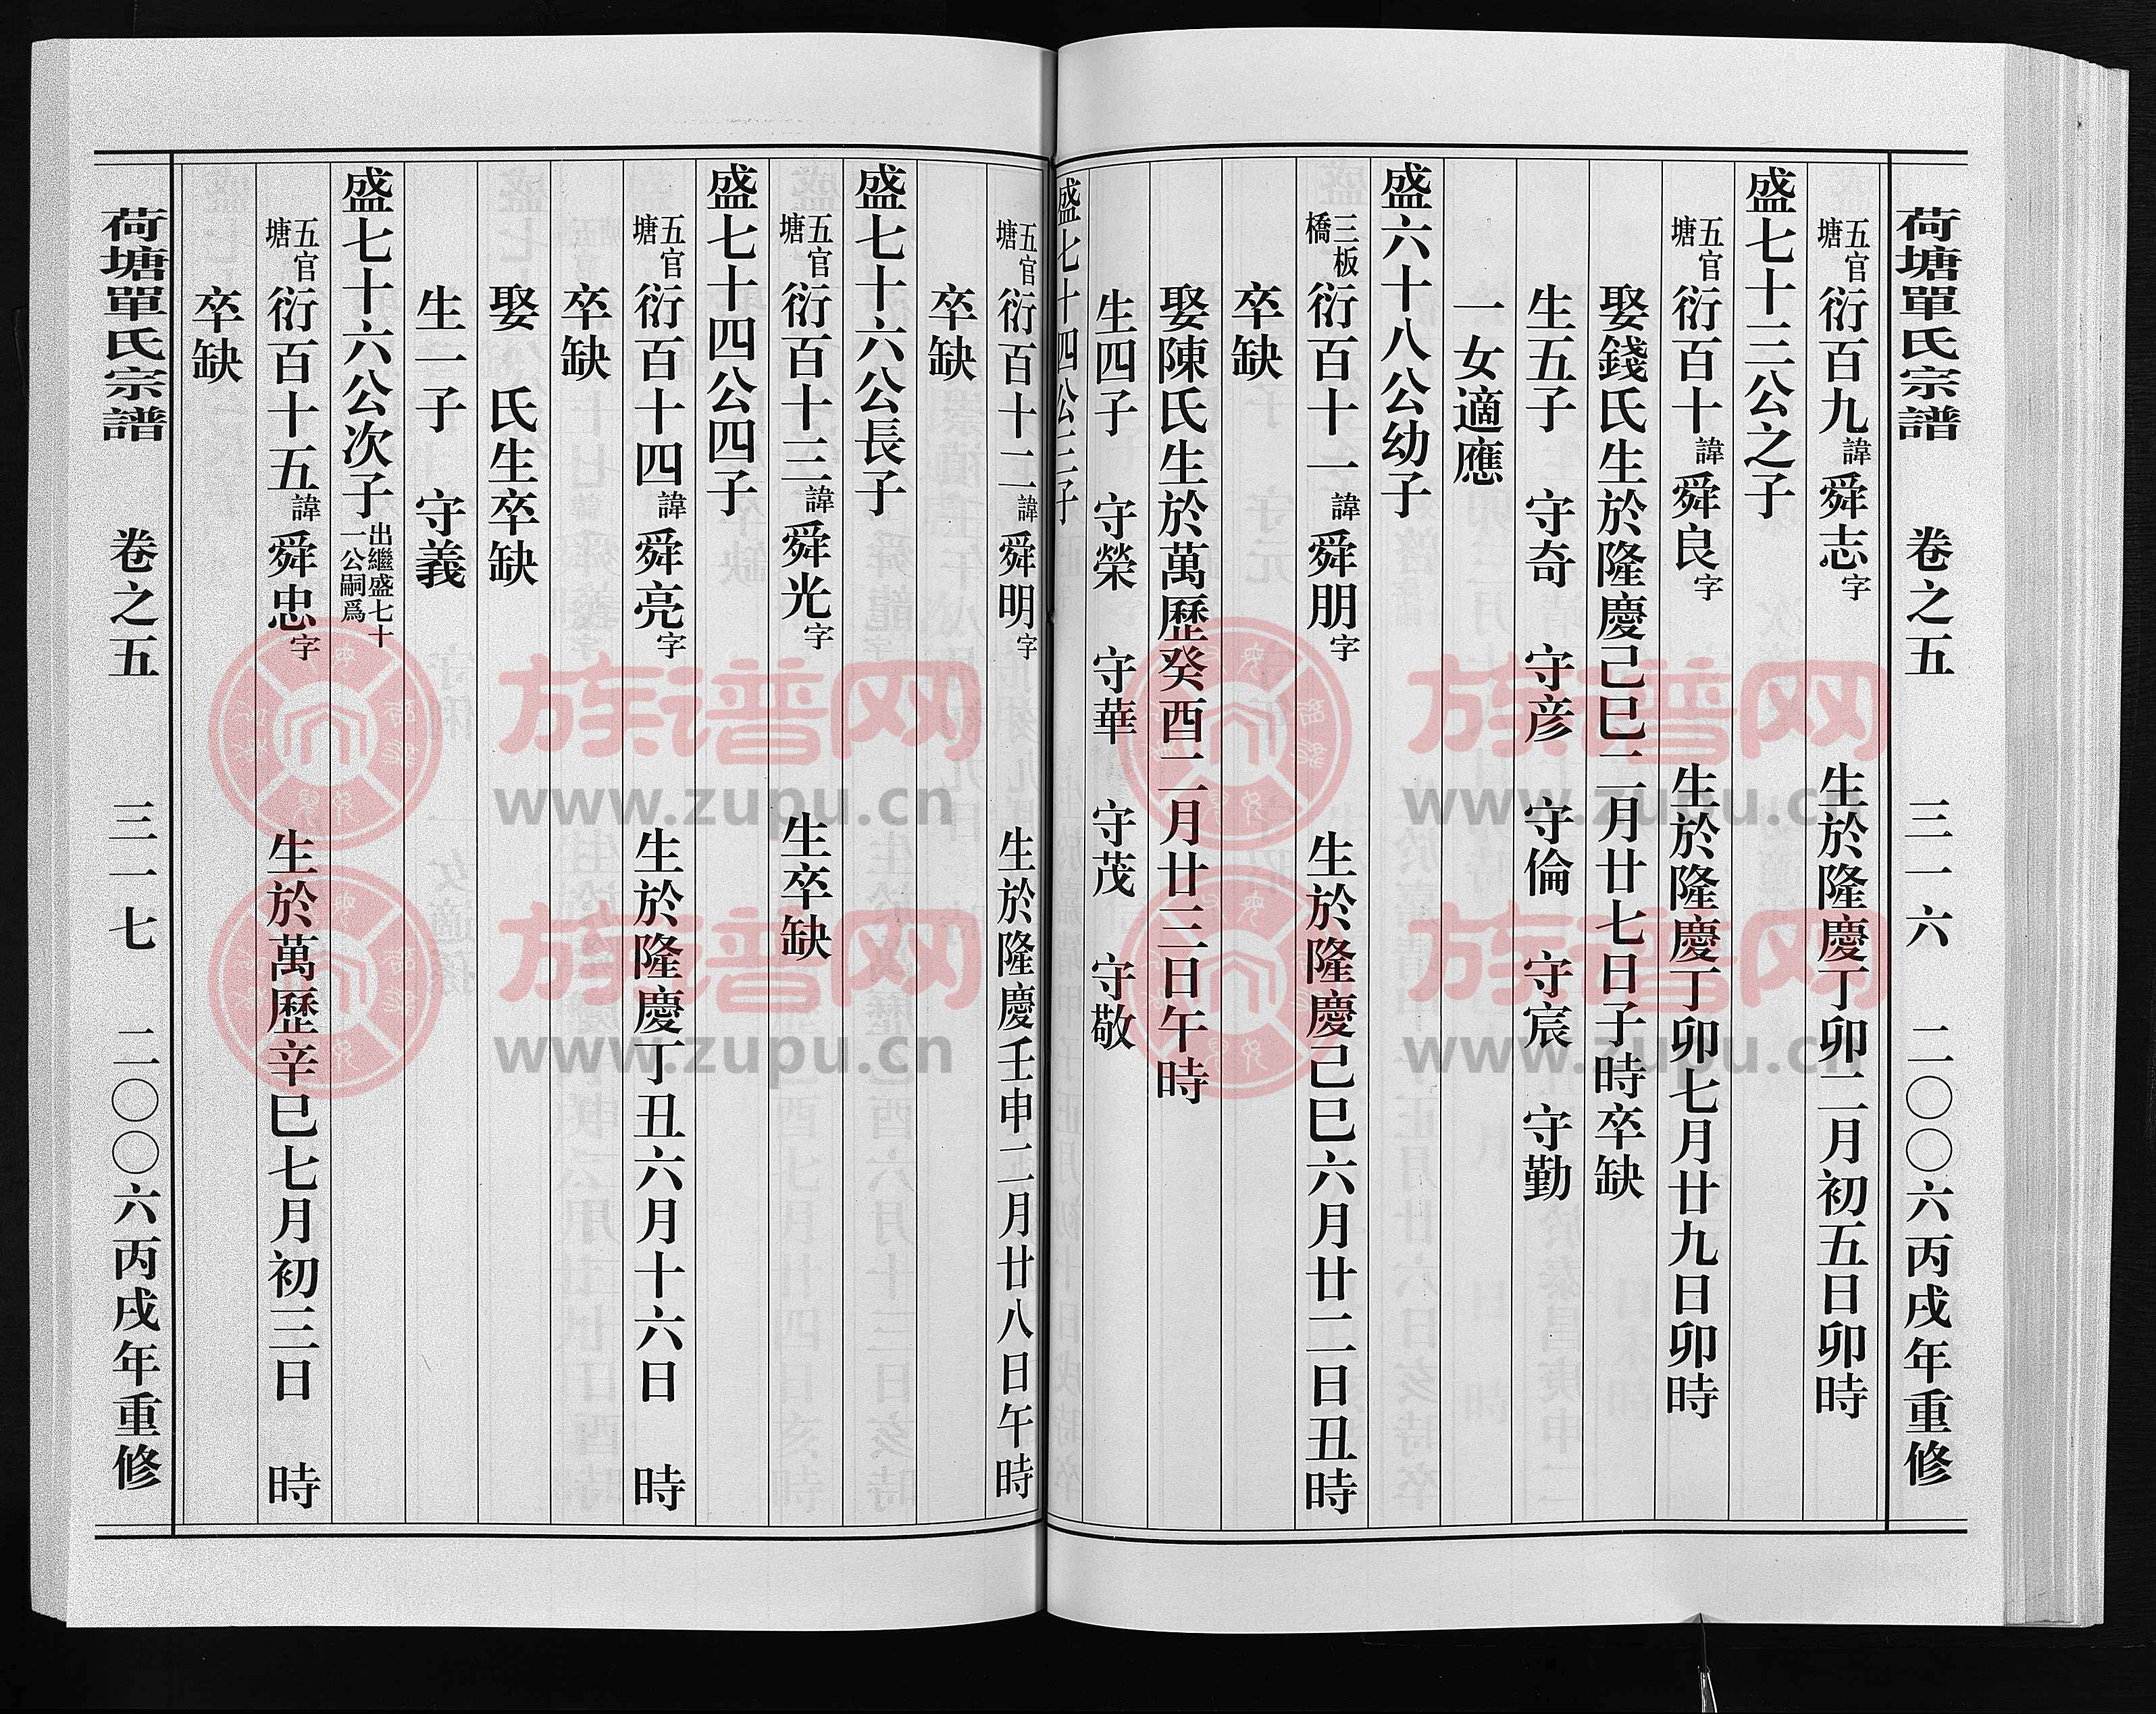 荷塘單氏宗譜 卷之五 三一六 二〇〇六丙戌年重修
五官塘衍百九諱舜志字 生於隆慶丁卯二月初五日卯時
盛七十三公之子
五官塘衍百十諱舜良字 生於隆慶丁卯七月廿九日卯時
娶錢氏生於隆慶己巳二月廿七日子時卒缺
生五子 守奇 守彦 守倫 守宸 守勤
一女適應
盛六十八公幼子
三板橋衍百十一諱舜朋字 生於隆慶己巳六月廿二日丑時
卒缺
娶陳氏生於萬歷癸酉二月廿三日午時
生四子 守榮 守華 守茂 守敬
盛七十四公三子
五官塘衍百十二諱舜明字 生於隆慶壬申二月廿八日午時
卒缺
盛七十六公長子
五官塘衍百十三諱舜光字 生卒缺
盛七十四公四子
五官塘衍百十四諱舜亮字 生於隆慶丁丑六月十六日 時
卒缺
娶 氏生卒缺
生一子 守義
盛七十六公次子出繼盛七十一公嗣爲
五官塘衍百十五諱舜忠字 生於萬歷辛巳七月初三日 時
卒缺
荷塘單氏宗譜 卷之五 三一七 二〇〇六丙戌年重修
族谱网
www.zupu.cn
族谱网
www.zupu.cn
族谱网
www.zupu.cn
族谱网
www.zupu.cn